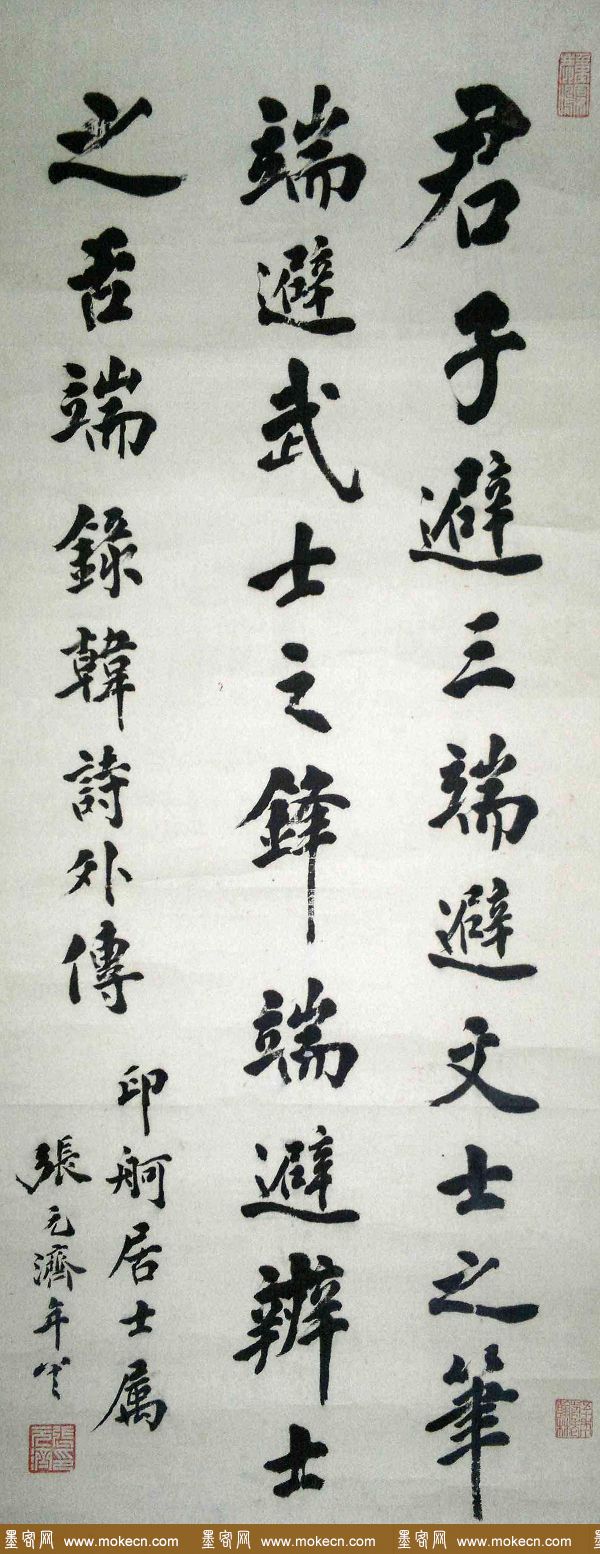 君子避三端避文士之筆
端避武士之鋒端避辨士
之舌端錄韓詩外傳
印舸居士属
張元濟年
墨客网 www.mokecn.com 墨客网 www.mokecn.com 墨客网 www.mokecn.com